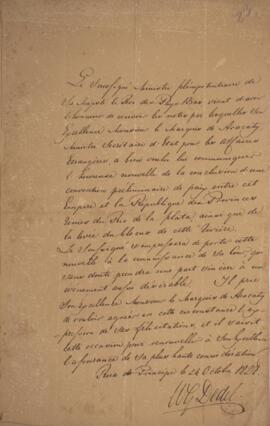 Le Soussigné Ministre plénipotentiaire de
Sa Majesté le Roi des Pays Bas vient d'avoir
l'honneur de recevoir les notes par lesquelles Son
Excellence Monsieur le Marquis de Aracaty
Ministre Secrétaire d'Etat pour les Affaires
Etrangères, a bien voulu lui communiquer
l'heureuse nouvelle de la conclusion d'une
convention préliminaire de paix entre cet
Empire et la République des Provinces
Unies du Rio de la plata, ainsi que de
la levée du blocus de cette Rivière.
Le Soussigné s'empressera de porter cette
nouvelle à la connaissance de Sa Cour, qui
sans doute prendra une part sincère à un
évènement aussi désirable. Il prie
Son Excellence Monsieur le Marquis de Aracaty
de vouloir agréer en cette circonstance l'ex-
pression de ses félicitations, et il saisit
cette occasion pour renouveller à Son Excellence
l'assurance de sa plus haute considération.
Praia de 24 Octobre 1828
W G Dedel